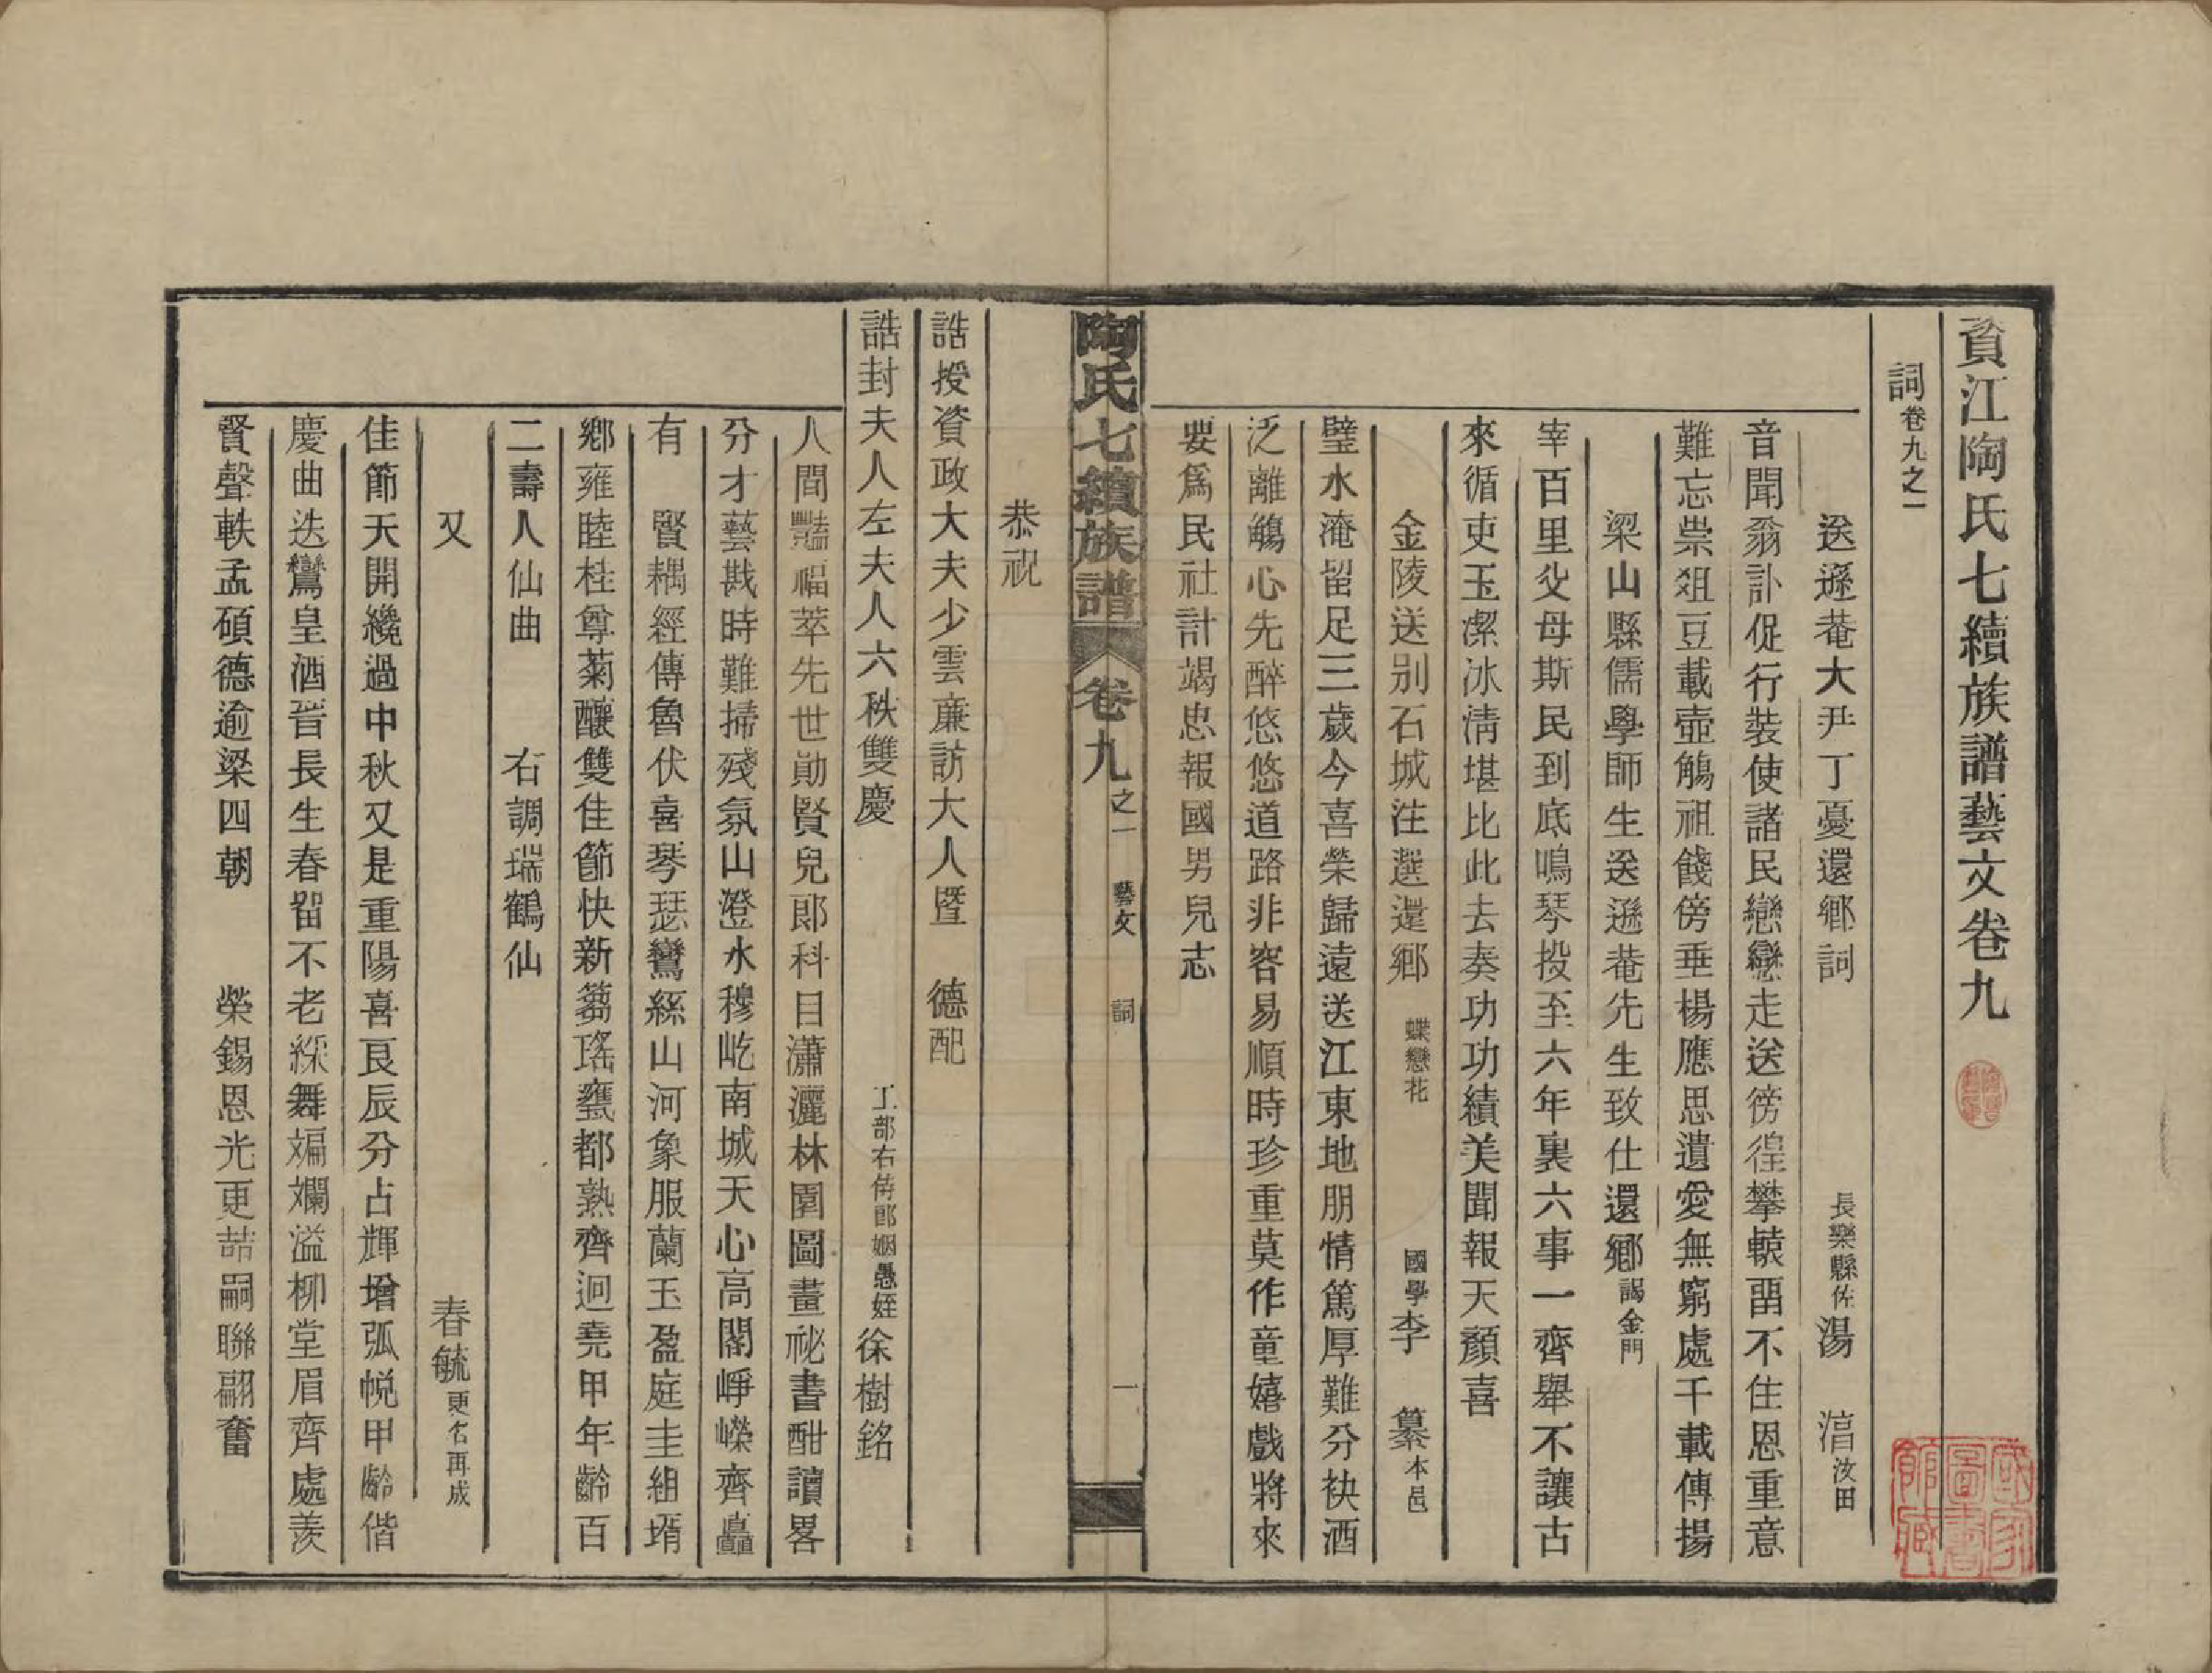 資江陶氏七續族譜藝文卷九
詞卷九之一
送遜菴大尹丁憂還鄉詞 長樂縣佐湯 湻汝田
音聞翁訃促行裝使諸民戀戀走送徬徨攀轅畱不住恩重意
難忘祟俎豆載壺觴祖餞傍垂楊應思遺愛無窮處千載傳揚
梁山縣儒學師生送遜菴先生致仕還鄉謁金門
宰百里父母斯民到底鳴琴投至六年裏六事一齊舉不讓古
來循吏玉潔冰淸堪比此去奏功功績美聞報天顏喜
金陵送別石城注選還鄉 蝶戀花 國學李 纂本邑
璧水淹畱足三歲今喜榮歸遠送江東地朋情篤厚難分袂酒
泛離觴心先醉悠悠道路非容易順時珍重莫作童嬉戲將來
要爲民社計竭忠報國男兒志
陶氏七續族譜 卷九之一 藝文 詞 一
恭祝
誥授資政大夫少雲廉訪大人曁 德配
誥封夫人左夫人六秩雙慶 工部右侍郎姻愚姪徐樹銘
人間豔福萃先世勛賢兒郎科目瀟灑林園圖畫祕書酣讀畧
分才藝戡時難掃殘氛山澄水穆屹南城天心高閣崢嶸齊矗
有 賢耦經傳魯伏喜琴瑟鸞絲山河象服蘭玉盈庭圭組壻
鄉雍睦桂尊菊釀雙佳節快新蒭瑤甕都熟齊迴堯甲年齡百
二壽人仙曲 右調瑞鶴仙
又 春毓更名再成
佳節天開纔過中秋又是重陽喜良辰分占輝增弧帨甲齡偕
慶曲迭鸞皇酒晉長生春畱不老綵舞斒斕溢柳堂眉齊處羨
賢聲軼孟碩德逾梁四朝 榮錫恩光更喆嗣聯翩奮